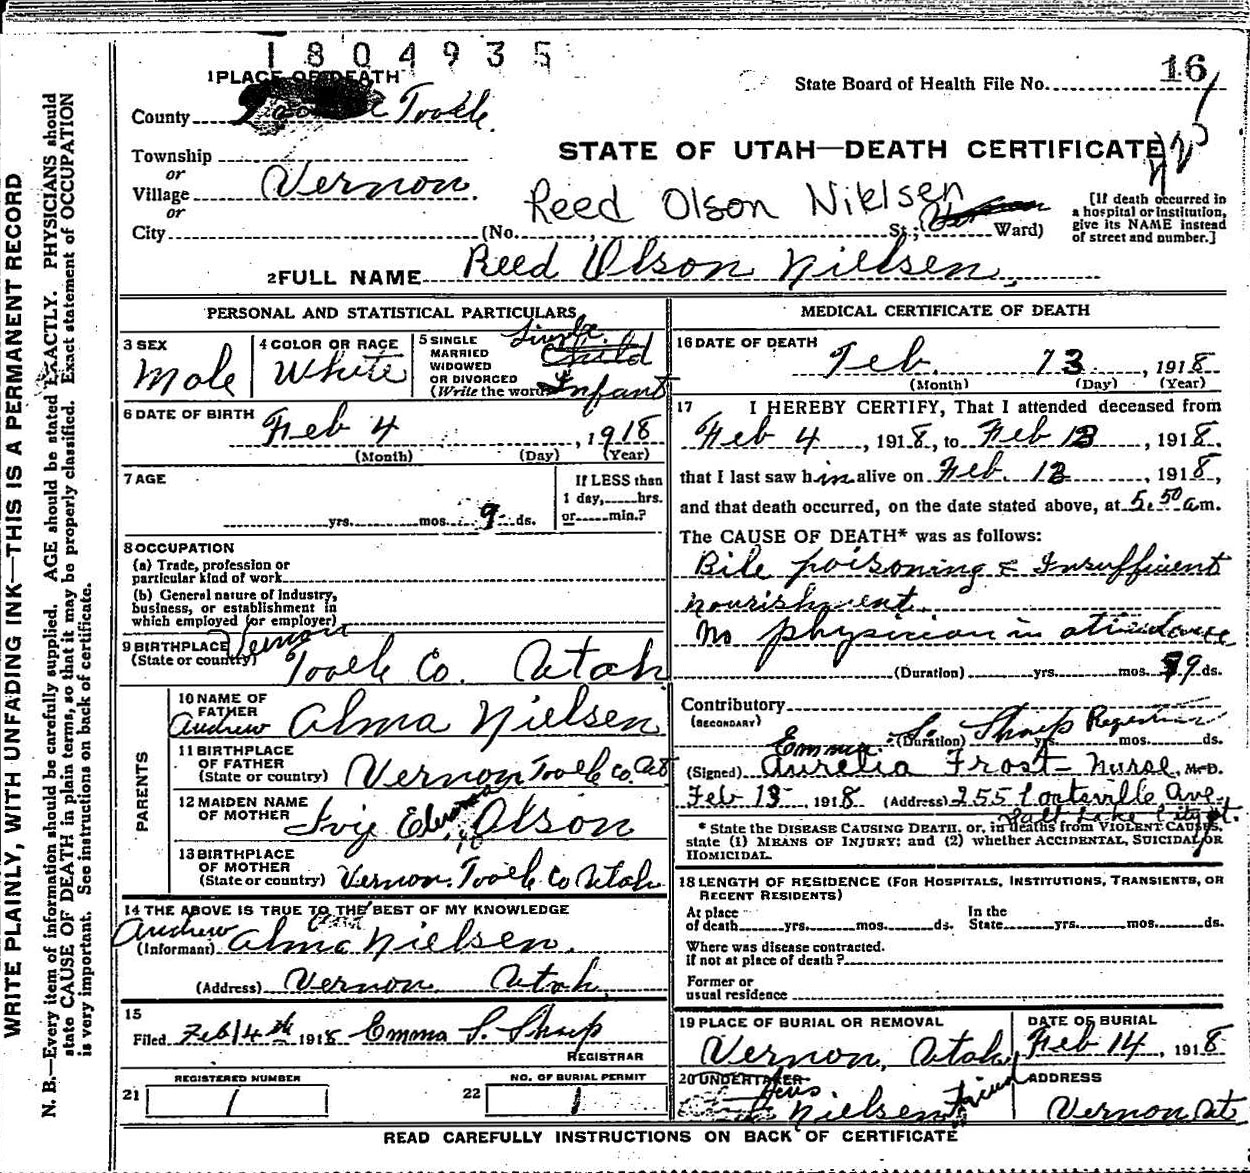 1804935
1 PLACE OF DEATH
State Board of Health File No. 16
County Tooele
Township
or
Village Vernon
or
STATE OF UTAH—DEATH CERTIFICATE
Reed Olson Niklsen
City (No. St.; Ward)
[If death occurred in
a hospital or institution,
give its NAME instead
of street and number.]
2 FULL NAME Reed Olson Nielsen
PERSONAL AND STATISTICAL PARTICULARS
3 SEX
Male
4 COLOR OR RACE
White
5 SINGLE
MARRIED
WIDOWED
OR DIVORCED
(Write the word)
Single
Child
Infant
6 DATE OF BIRTH
Feb 4, 1918
(Month) (Day) (Year)
7 AGE
yrs. mos. 9 ds.
If LESS than
1 day, hrs.
or min.?
8 OCCUPATION
(a) Trade, profession or
particular kind of work
(b) General nature of industry,
business, or establishment in
which employed (or employer)
9 BIRTHPLACE
(State or country)
Vernon
Tooele Co. Utah
PARENTS
10 NAME OF
FATHER
Andrew Alma Nielsen
11 BIRTHPLACE
OF FATHER
(State or country) Vernon Tooele Co. Ut
12 MAIDEN NAME
OF MOTHER
Ivy Edwina Olson
13 BIRTHPLACE
OF MOTHER
(State or country) Vernon. Tooele Co Utah
14 THE ABOVE IS TRUE TO THE BEST OF MY KNOWLEDGE
Andrew
(Informant) Alma Nielsen.
(Address) Vernon Utah
15
Filed Feb 14th 1918 Emma S. Sharp
REGISTRAR
REGISTERED NUMBER
21 1
NO. OF BURIAL PERMIT
22 1
MEDICAL CERTIFICATE OF DEATH
16 DATE OF DEATH
Feb. 13, 1918
(Month) (Day) (Year)
17 I HEREBY CERTIFY, That I attended deceased from
Feb 4, 1918, to Feb 13, 1918.
that I last saw him alive on Feb. 13, 1918,
and that death occurred, on the date stated above, at 5.50 a m.
The CAUSE OF DEATH* was as follows:
Bile poisoning & Insufficient
nourishment.
No physician in attendance
(Duration) yrs. mos. 9 ds.
Contributory
(SECONDARY)
(Duration) yrs. mos. ds.
Emma S. Sharp Registrar
(Signed) Aurelia Frost - Nurse, M. D.
Feb 13, 1918 (Address) 255 Ave.
Salt Lake City Ut.
* State the DISEASE CAUSING DEATH, or, in deaths from VIOLENT CAUSES,
state (1) MEANS OF INJURY; and (2) whether ACCIDENTAL, SUICIDAL, OR
HOMICIDAL.
18 LENGTH OF RESIDENCE (FOR HOSPITALS, INSTITUTIONS, TRANSIENTS, OR
RECENT RESIDENTS)
At place
of death yrs. mos. ds.
In the
State yrs. mos. ds.
Where was disease contracted.
if not at place of death?
Former or
usual residence
19 PLACE OF BURIAL OR REMOVAL
Vernon, Utah
DATE OF BURIAL
Feb 14, 1918
20 UNDERTAKER
Nielsen Friend
ADDRESS
Vernon Ut
READ CAREFULLY INSTRUCTIONS ON BACK OF CERTIFICATE
WRITE PLAINLY, WITH UNFADING INK—THIS IS A PERMANENT RECORD
N. B.—Every item of information should be carefully supplied. AGE should be stated EXACTLY. PHYSICIANS should
state CAUSE OF DEATH in plain terms, so that it may be properly classified. Exact statement of OCCUPATION
is very important. See instructions on back of certificate.